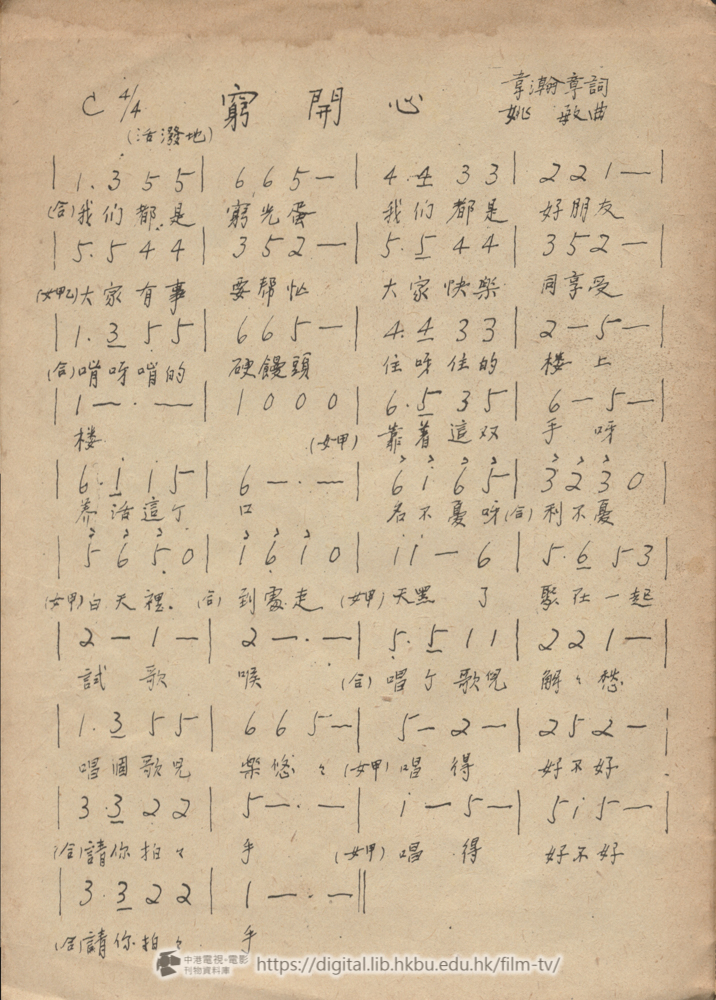 C 4/4 窮開心 韋瀚章詞
(活潑地) 姚敏曲
| 1. 3 5 5 | 6 6 5 — | 4. 4 3 3 | 2 2 1 — |
(合)我们都是 窮光蛋 我们都是 好朋友
| 5. 5 4 4 | 3 5 2 — | 5. 5 4 4 | 3 5 2 — |
大家有事 要帮忙 大家快樂 同享受
| 1. 3 5 5 | 6 6 5 — | 4. 4 3 3 | 2 — 5 — |
(合)啃呀啃的 硬饅頭 住呀住的 楼上
| 1 — · — | 1 0 0 0 | 6. 5 3 5 | 6 — 5 — |
楼 (女甲) 靠着這双 手呀
| 6. 1 1 5 | 6 — · — | 6 i 6 5 | 3 2 3 0 |
养活這个 口 名不憂呀(合)利不憂
| 5 6 5 0 | i 6 i 0 | i i — 6 | 5. 6 5 3 |
(女甲)白天裡. (合)到處走 (女甲)天黑了 聚在一起
| 2 — 1 — | 2 — · — | 5. 5 1 1 | 2 2 1 — |
試歌 喉 (合)唱个歌児 解々愁
| 1. 3 5 5 | 6 6 5 — | 5 — 2 — | 2 5 2 — |
唱個歌児 樂悠々 (女甲)唱得 好不好
| 3. 3 2 2 | 5 — · — | i — 5 — | 5 i 5 — |
(合)請你拍々 手 (女甲)唱得 好不好
| 3. 3 2 2 | 1 — · — ||
(合)請你拍々 手
中港電視·電影
刊物資料庫 https://digital.lib.hkbu.edu.hk/film-tv/